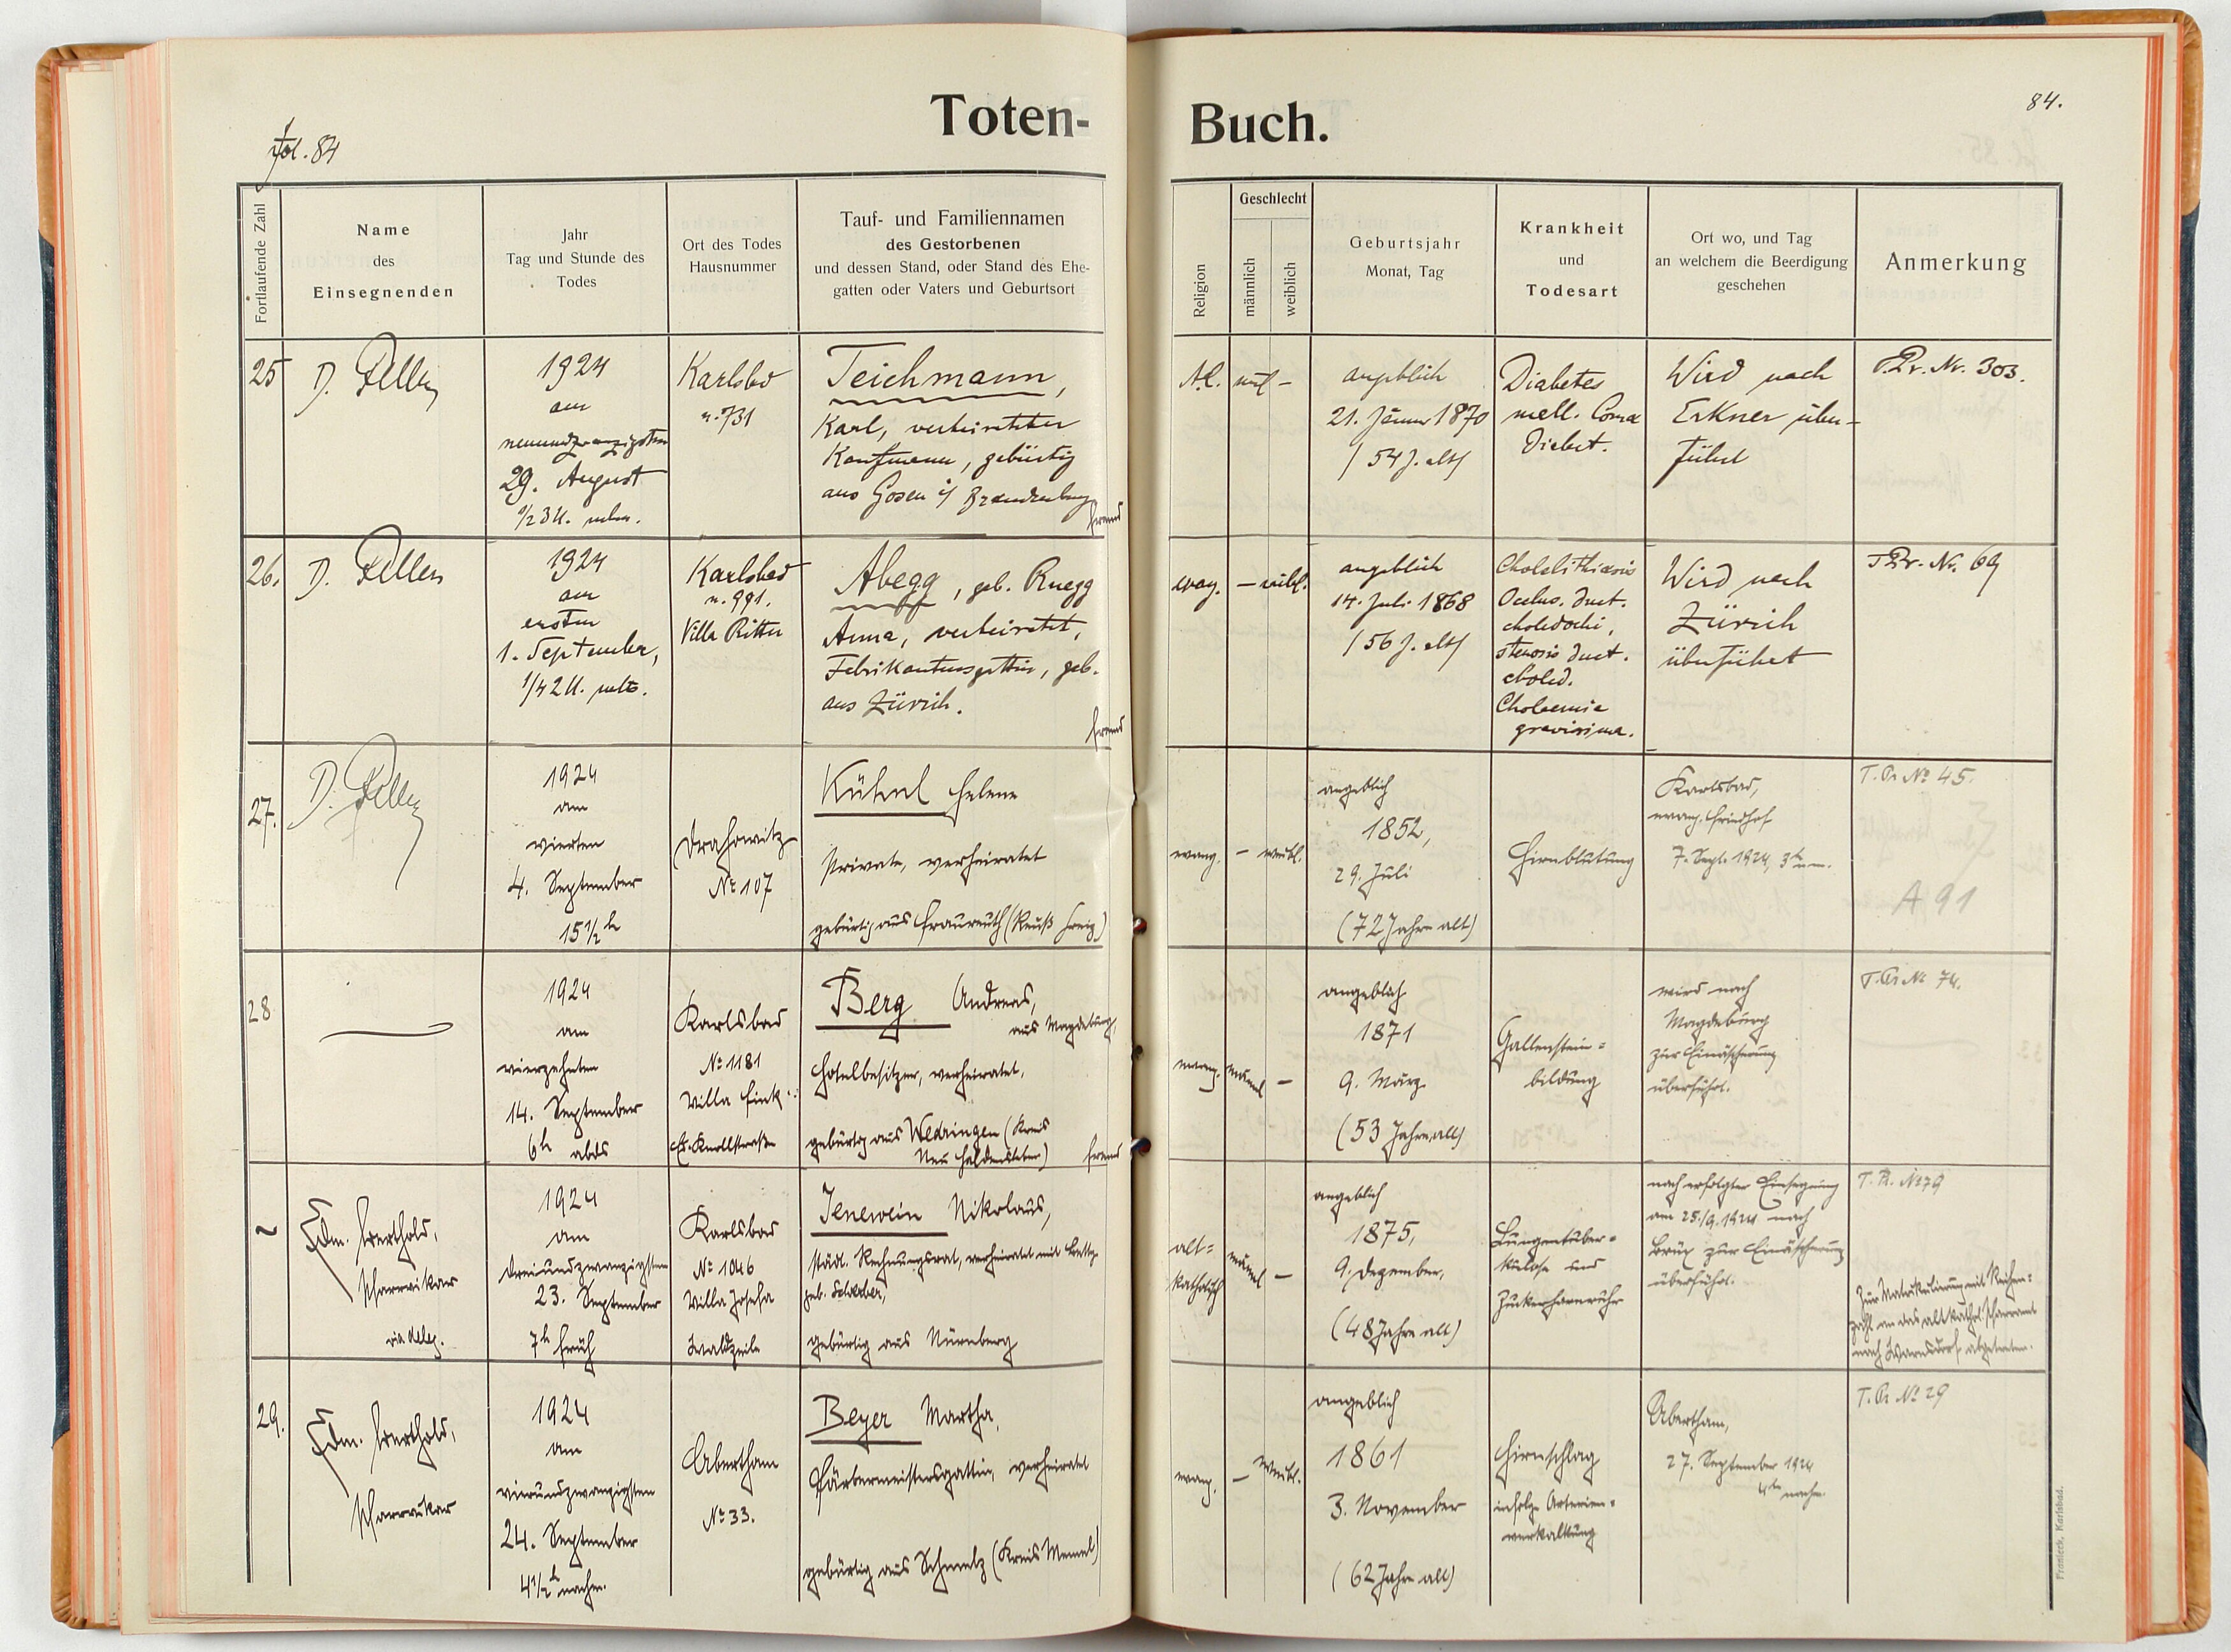 Toten-
Buch.
fol. 84
84.
Fortlaufende Zahl
Name
des
Einsegnenden
Jahr
Tag und Stunde des
Todes
Ort des Todes
Hausnummer
Tauf- und Familiennamen
des Gestorbenen
und dessen Stand, oder Stand des Ehe-
gatten oder Vaters und Geburtsort
Religion
Geschlecht
männlich
weiblich
Geburtsjahr
Monat, Tag
Krankheit
und
Todesart
Ort wo, und Tag
an welchem die Beerdigung
geschehen
Anmerkung
25
D.
1924
am
neunundzwanzigsten
29. August
1/2 3 U.
Karlsbd
n. 731
Teichmann,
Karl, verheirateter
Kaufmann, gebürtig
aus Gosen i/ Brandenburg
fremd
A.C.
ml –
angeblich
21. Jänner 1870
/ 54 J. alt /
Diabetes
mell. Coma
Diabet.
Wird nach
Erkner über-
führt
T.Pr. Nr. 303.
26.
D.
1924
am
ersten
1. September,
1/4 2 U.
Karlsbad
n. 991.
Villa Ritter
Abegg, geb. Ruegg
Anna, verheiratet,
Fabrikantensgattin, geb.
aus Zürich.
fremd
evang.
– weibl.
angeblich
14. Juli 1868
/ 56 J. alt /
Cholelithiasis
Occlus. duct.
choledochi,
stenosis duct.
choled.
Cholaemia
gravissima.
Wird nach
Zürich
überführt
T.Pr. Nr. 69
27.
D.
1924
am
vierten
4. September
15 1/2 h
Drahowitz
№ 107
Kühnl Helene
Private, verheiratet
gebürtig aus Fraureuth (Reuß Greiz)
evang.
– weibl.
angeblich
1852,
29. Juli
(72 Jahre alt)
Hirnblutung
Karlsbad,
evang. Friedhof
7. Sept. 1924, 3h nm.
T. Pr. № 45.
A 91
28
1924
am
vierzehnten
14. September
6h abds
Karlsbad
№ 1181
Villa Fink
Berg Andreas,
aus Magdeburg,
Hotelbesitzer, verheiratet,
gebürtig aus Wedringen (Kreis
Neu Haldensleben)
fremd
evang.
männl –
angeblich
1871
9. März
(53 Jahre alt)
Gallenstein=
bildung
wird nach
Magdeburg
zur Einäscherung
überführt.
T. Pr. № 74.
~
Edm. Berthold,
Pfarrvikar
via deleg.
1924
am
dreiundzwanzigsten
23. September
7h früh
Karlsbad
№ 1046
Villa Josefa
Waldzeile
Jenewein Nikolaus,
städt. Rechnungsrat, verheiratet mit Betty
geb. Schreiber,
gebürtig aus Nürnberg
alt=
katholisch
männl –
angeblich
1875,
9. Dezember,
(48 Jahre alt)
Lungentuber=
kulose und
Zuckerharnruhr
nach erfolgter Einsegnung
am 25./9. 1924 nach
Brüx zur Einäscherung
überführt.
T. Pr. № 79
Zur Matrikulierung mit Reihen=
zahl an das altkathol. Pfarramt
nach Warnsdorf abgetreten.
29.
Edm. Berthold,
Pfarrvikar
1924
am
vierundzwanzigsten
24. September
4 1/2 h nachm.
Abertham
№ 33.
Beyer Martha,
Färbermeistersgattin, verheiratet
gebürtig aus Schmelz (Kreis Memel)
evang.
– weibl.
angeblich
1861
3. November
(62 Jahre alt)
Hirnschlag
infolge Arterien=
verkalkung
Abertham,
27. September 1924
4h nachm.
T. Pr. № 29
Franieck, Karlsbad.